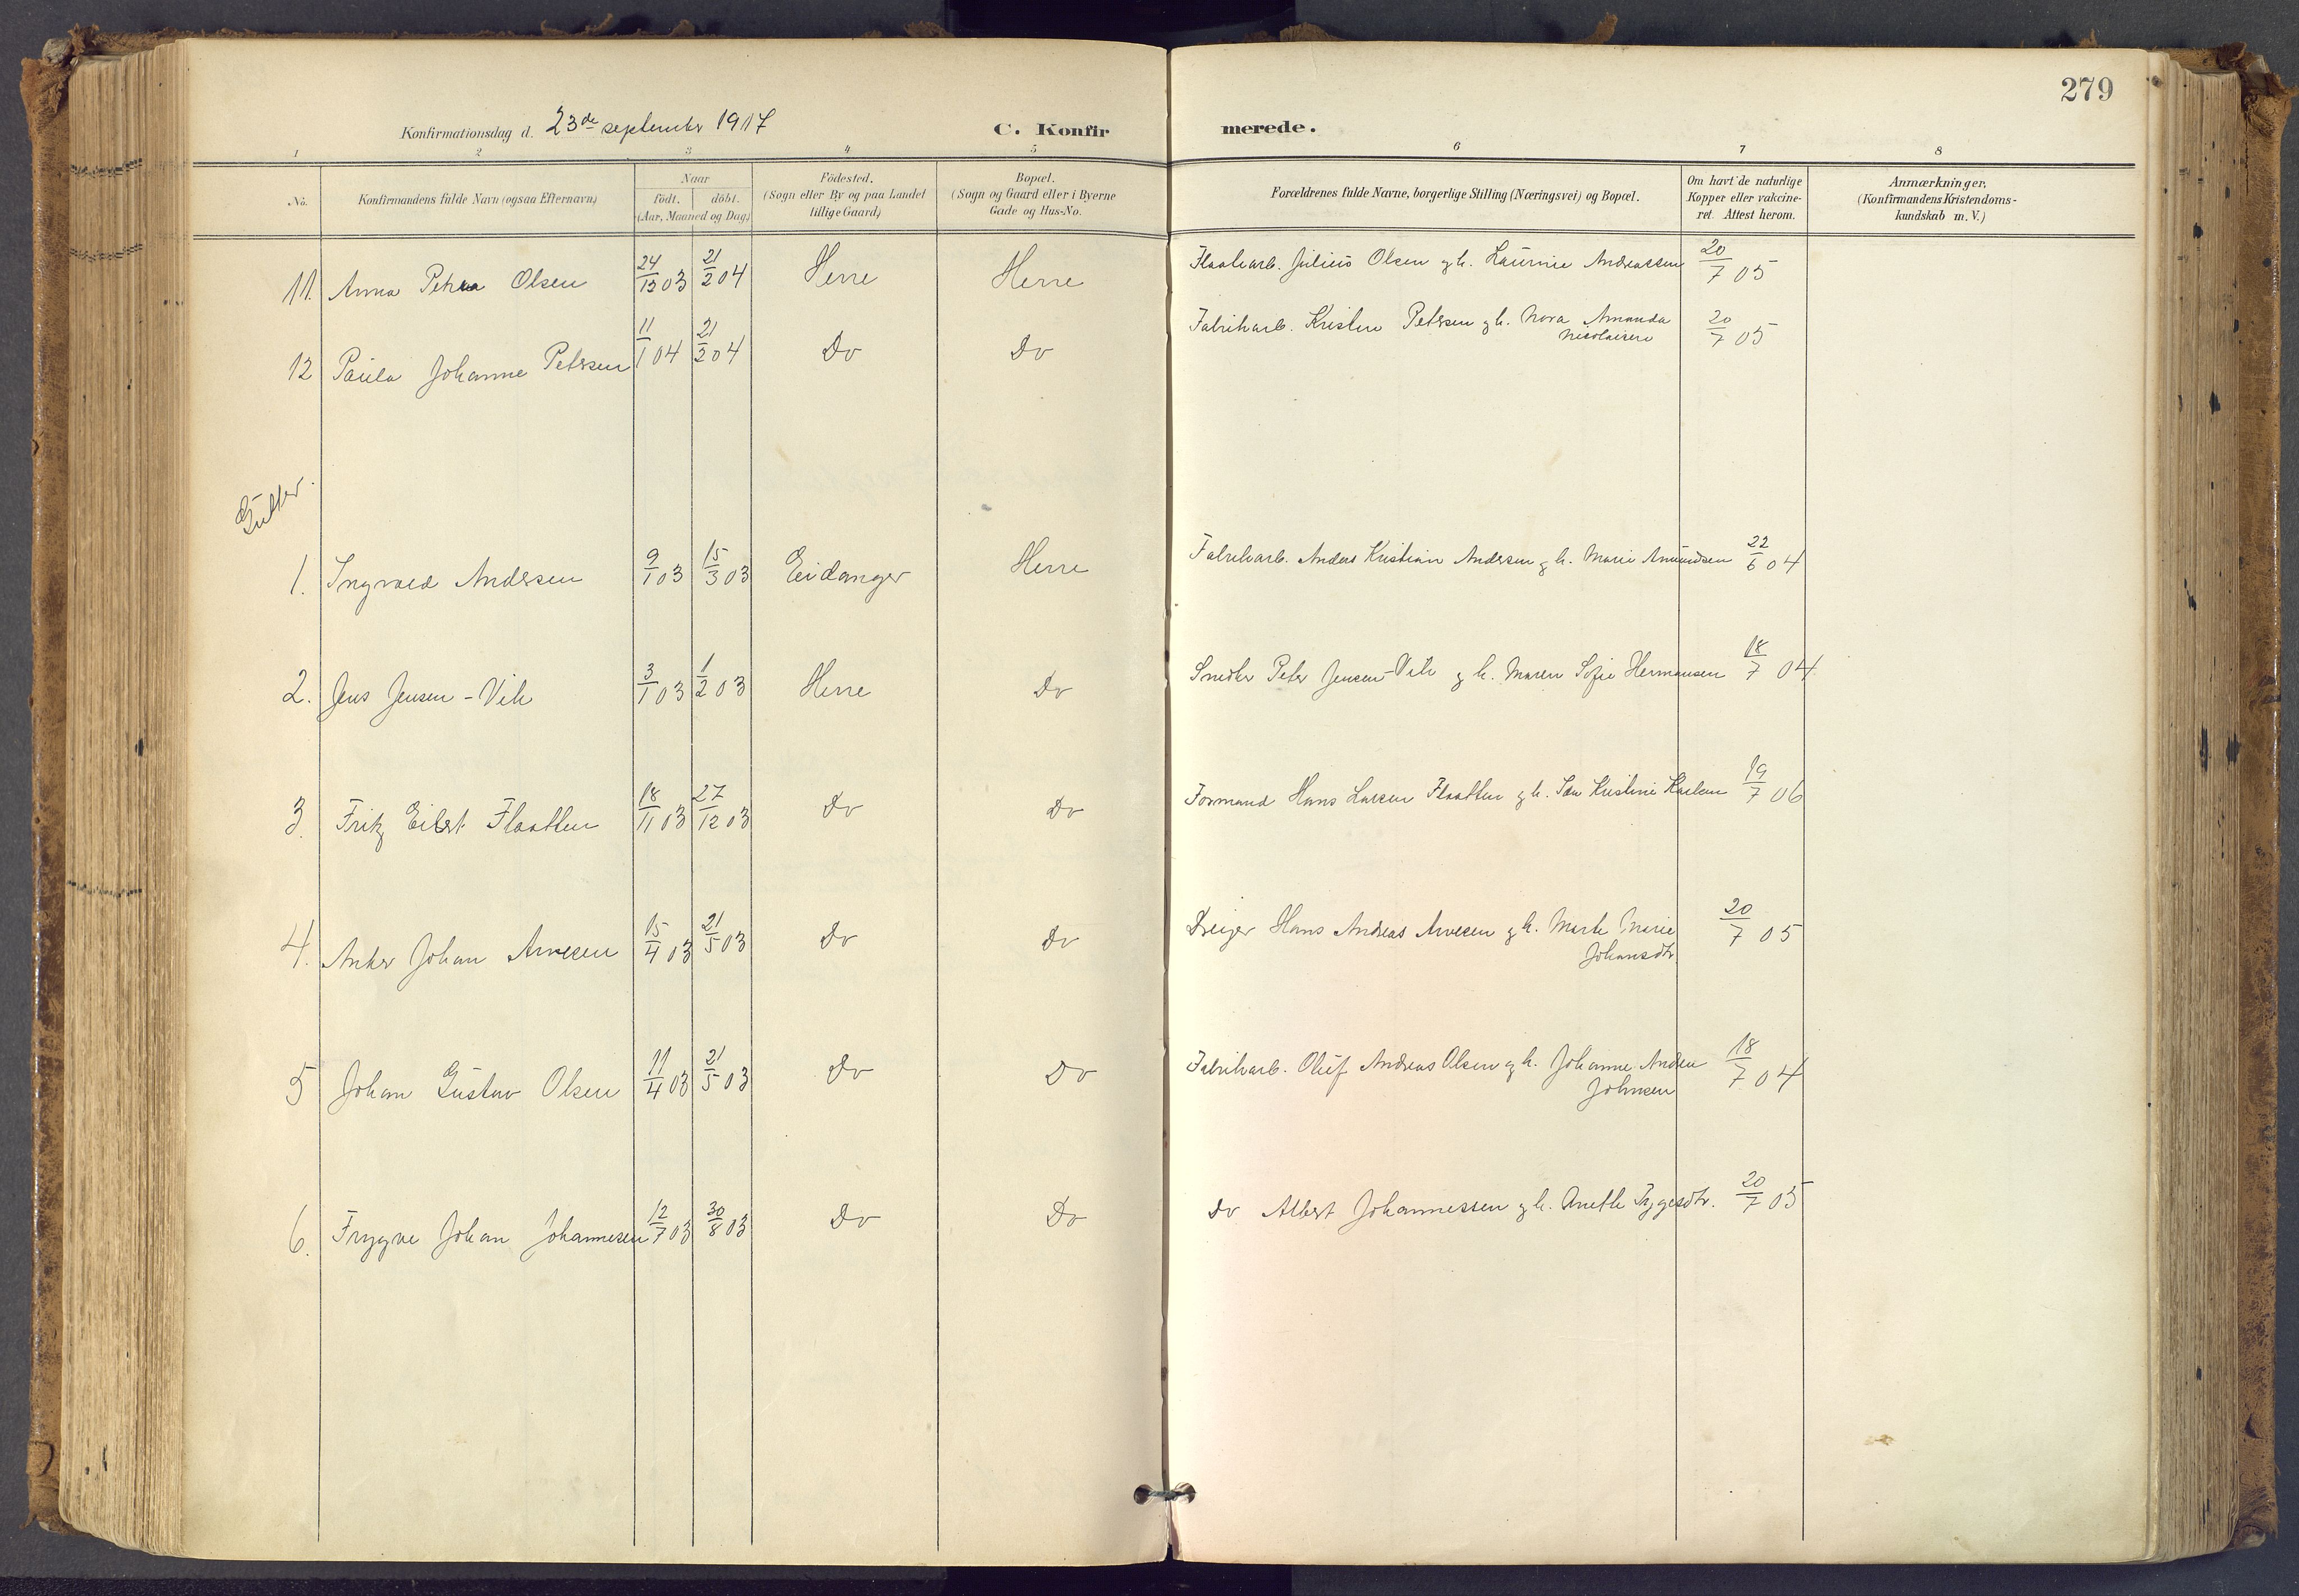 279
Konfirmationsdag d. 23de september 1917 C. Konfirmerede.
1 2 3 4 5 6 7 8
No. Konfirmandens fulde Navn (ogsaa Efternavn) Naar födt. döbt. (Aar, Maaned og Dag) Födested. (Sogn eller By og paa Landet tillige Gaard) Bopæl. (Sogn og Gaard eller i Byerne Gade og Hus-No. Forældrenes fulde Navne, borgerlige Stilling (Næringsvei) og Bopæl. Om havt de naturlige Kopper eller vakcineret. Attest herom. Anmærkninger. (Konfirmandens Kristendomskundskab m. V.)
11. Anna Petra Olsen 24/12 03 21/2 04 Herre Herre Julius Olsen og h. Laurine Andreassen 20/7 05
12 Paula Johanne Petersen 11/1 04 21/2 04 Do Do Fabrikarb. Kristen Petersen og h. Nora Amanda Nicolaisen 20/7 05
Gutter.
1. Ingvald Andersen 9/1 03 15/3 03 Eidanger Herre Fabrikarb. Anders Kristian Andersen og h. Marie Amundsen 22/6 04
2. Jens Jensen-Vik 3/1 03 1/2 03 Herre Do Snedker Peter Jensen-Vik og h. Maren Sofie Hermansen 18/7 04
3. Fritz Eilert Flaatten 18/11 03 27/12 03 Do Do Formand Hans Larsen Flaatten og h. Kristine Karlsen 19/7 06
4. Anker Johan Arvesen 15/4 03 21/5 03 Do Do Dreiger Hans Andreas Arvesen og h. Marte Marie Johansdtr. 20/7 05
5 Johan Gustav Olsen 11/4 03 21/5 03 Do Do Fabrikarb. Oluf Andreas Olsen og h. Johanne Andrea Johnsen 18/7 04
6. Trygve Johan Johannesen 12/7 03 30/8 03 Do Do Do Albert Johannessen og h. Anethe Tryggesdtr. 20/7 05